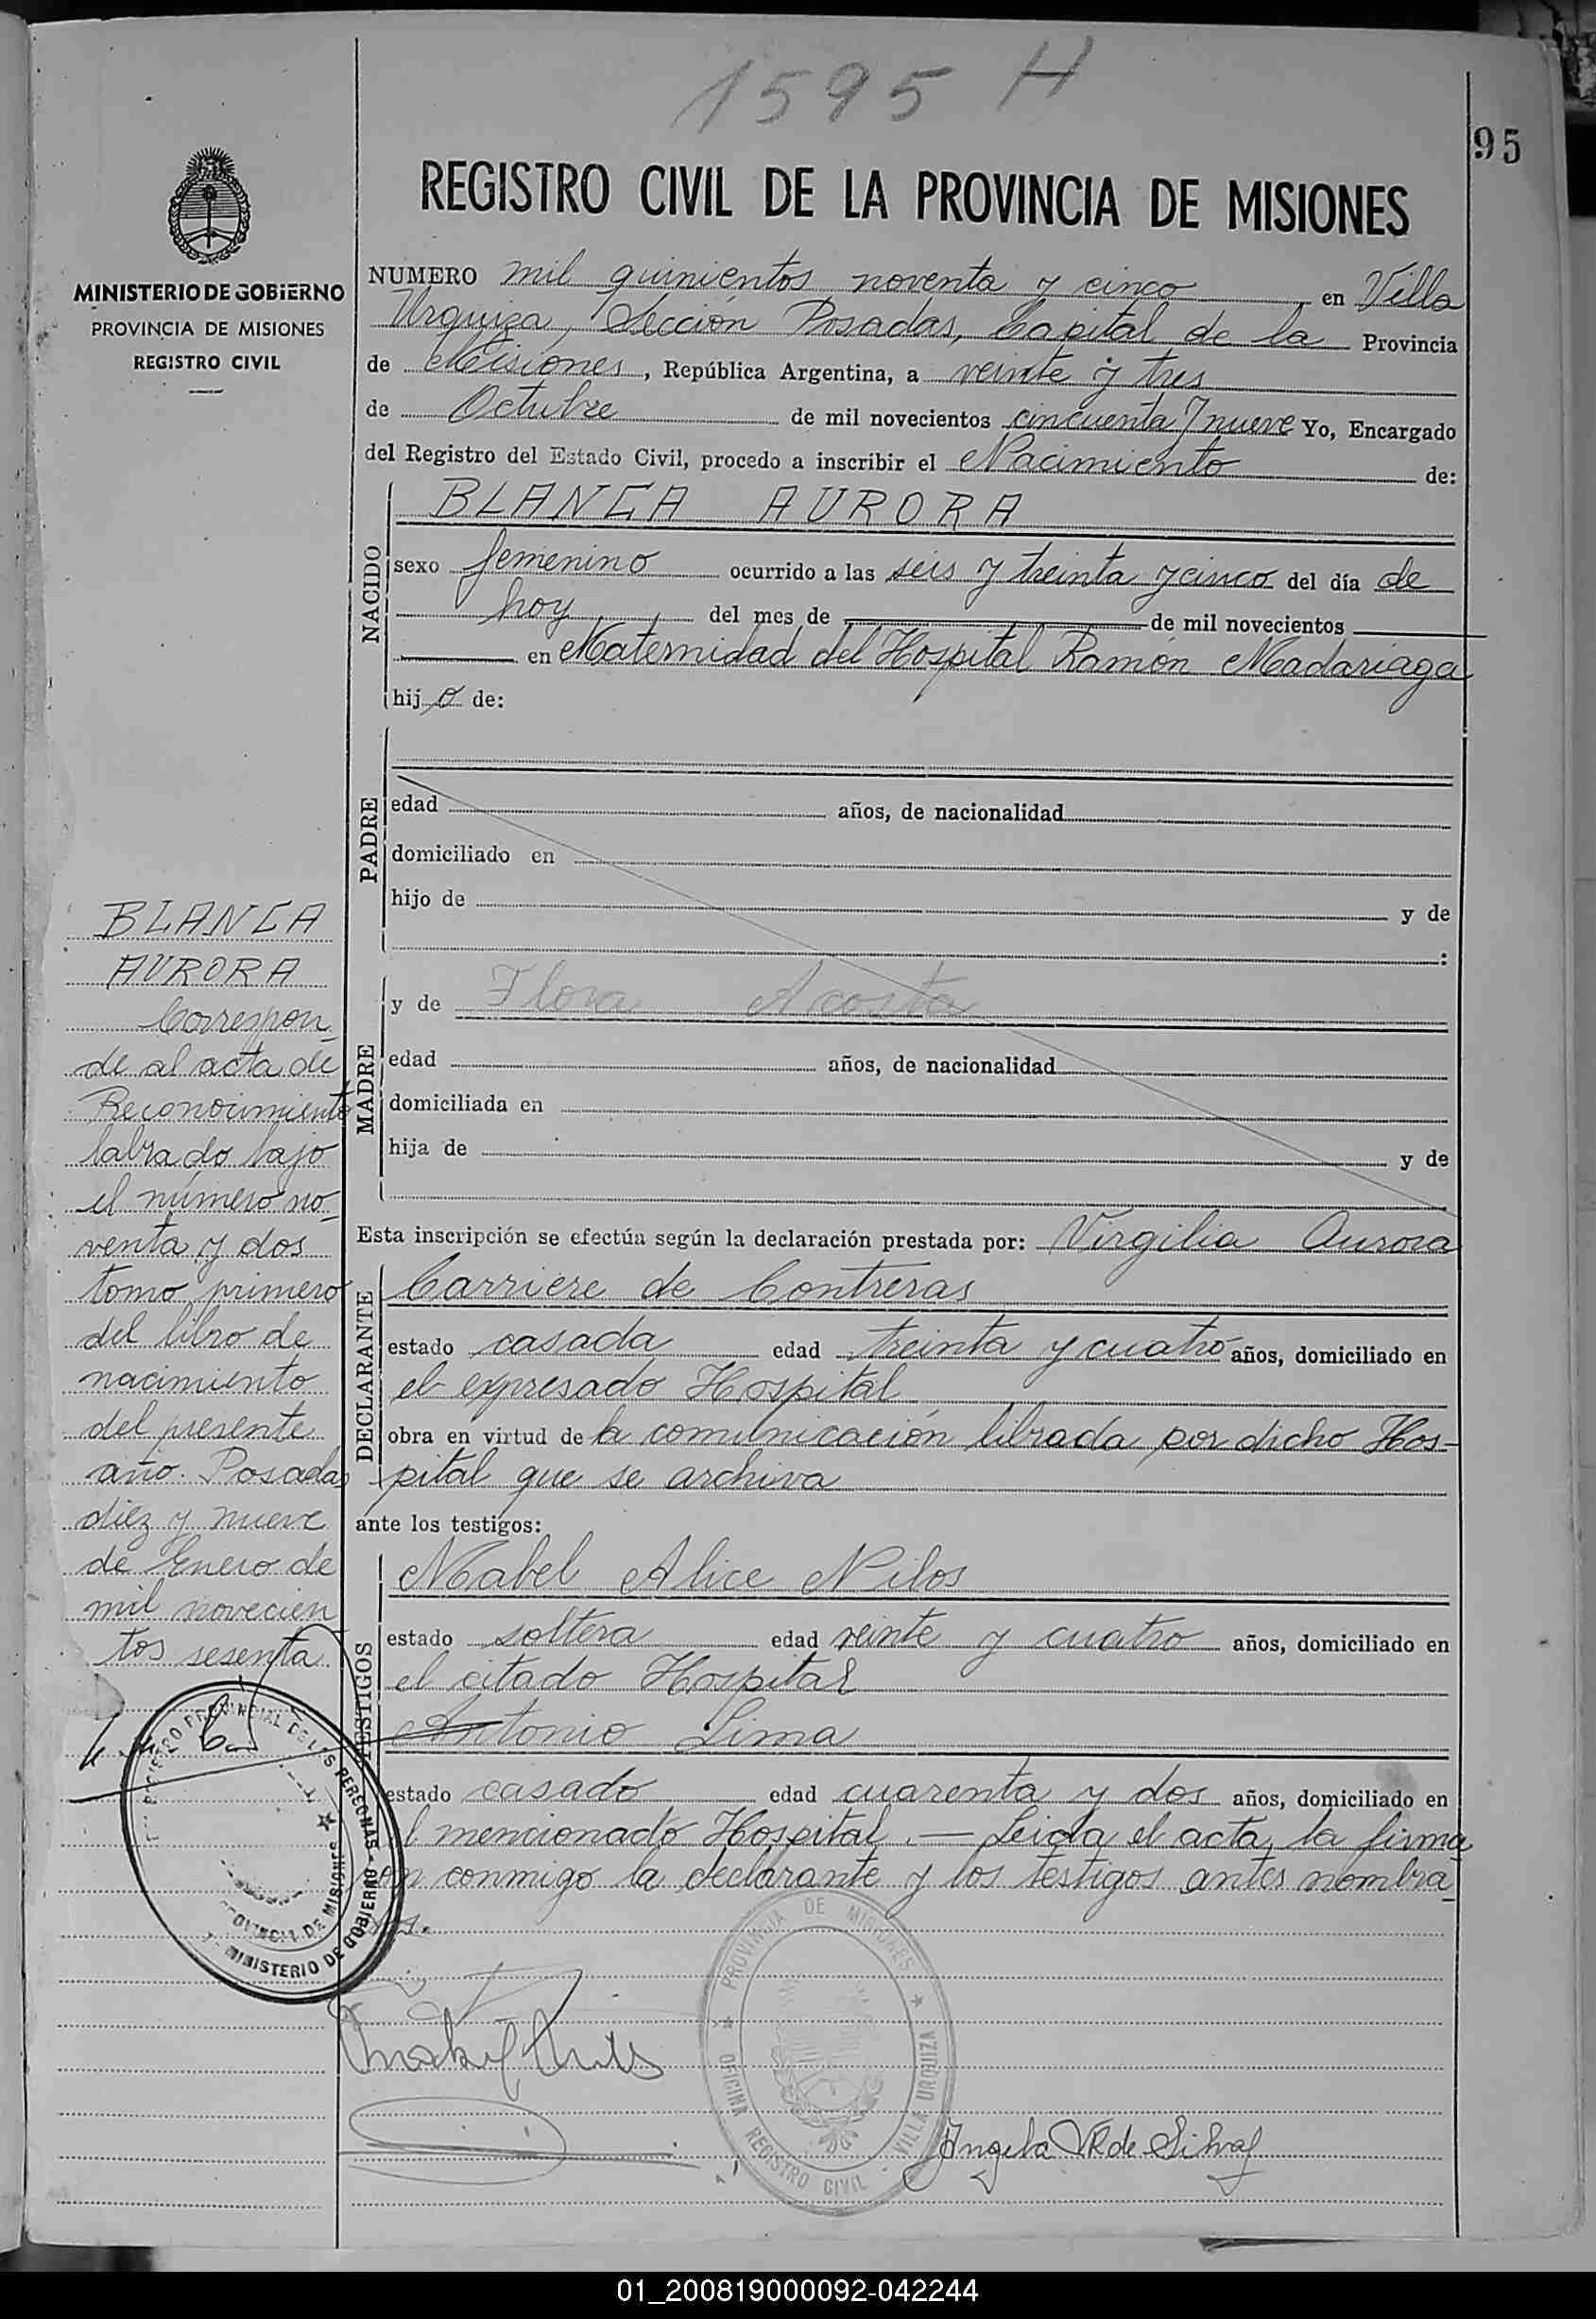 1595 H
95
REGISTRO CIVIL DE LA PROVINCIA DE MISIONES
MINISTERIO DE GOBIERNO
PROVINCIA DE MISIONES
REGISTRO CIVIL
NUMERO mil quinientos noventa y cinco, en Villa
Urquiza, Sección Posadas, Capital de la Provincia
de Misiones, República Argentina, a veinte y tres
de Octubre de mil novecientos cincuenta y nueve Yo, Encargado
del Registro del Estado Civil, procedo a inscribir el Nacimiento de:
NACIDO
BLANCA AURORA
sexo femenino ocurrido a las seis y treinta y cinco del día de
hoy del mes de de mil novecientos
en Maternidad del Hospital Ramón Madariaga
hijo de:
PADRE
edad años, de nacionalidad
domiciliado en
hijo de y de
:
MADRE
y de Flora Acosta
edad años, de nacionalidad
domiciliada en
hija de y de
Esta inscripción se efectúa según la declaración prestada por: Virgilia Aurora
DECLARANTE
Carriere de Contreras
estado casada edad treinta y cuatro años, domiciliado en
el expresado Hospital
obra en virtud de la comunicación librada por dicho Hos-
pital que se archiva
ante los testigos:
TESTIGOS
Mabel Alice Nilos
estado soltera edad veinte y cuatro años, domiciliado en
el citado Hospital
Antonio Lima
estado casado edad cuarenta y dos años, domiciliado en
el mencionado Hospital.— Leida el acta, la firma
ron conmigo la declarante y los testigos antes nombra
dos.
BLANCA
AURORA
Correspon
de al acta de
Reconocimiento
labrado bajo
el número no-
venta y dos
tomo primero
del libro de
nacimiento
del presente
año. Posadas
diez y nueve
de Enero de
mil novecien
tos sesenta
PROVINCIAL DE LAS PERSONAS
MINISTERIO DE GOBIERNO
PROVINCIA DE MISIONES
PROVINCIA DE MISIONES
OFICINA REGISTRO CIVIL - VILLA URQUIZA
Angela V R de Silva
01_200819000092-042244